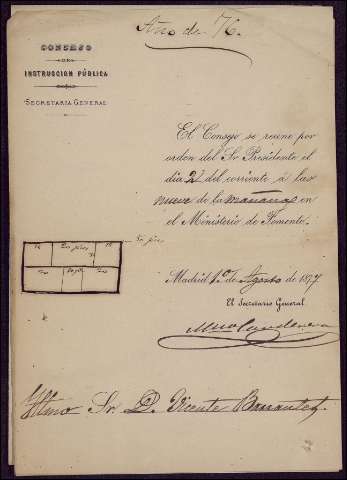 Año de 76.
CONSEJO
DE
INSTRUCCION PÚBLICA
SECRETARÍA GENERAL
El Consejo se reune por
orden del Sr. Presidente el
día 2 del corriente á las
nueve de la mañana en
el Ministerio de Fomento.
Madrid 1º de Agosto de 1877
El Secretario General
Illmo Sr. D. Vicente Barrantes.